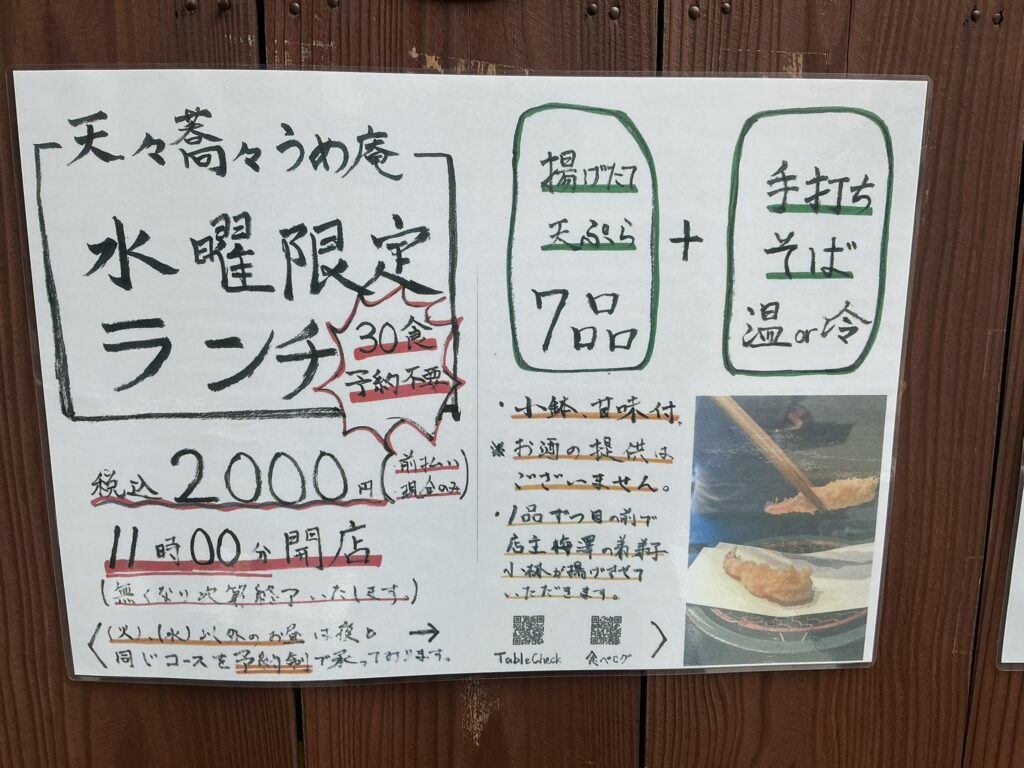 天々蕎々うめ庵
水曜限定
ランチ
30食
予約不要
税込2000円
(前払い
現金のみ)
11時00分開店
(無くなり次第終了いたします。)
〈(火)、(水)以外のお昼は夜と→
同じコースを予約制で承っております。
揚げたて
天ぷら
7品
+
手打ち
そば
温or冷
・小鉢、甘味付。
※お酒の提供は
ございません。
・1品ずつ目の前で
店主梅澤の弟弟子
小林が揚げさせて
いただきます。
TableCheck 食べログ 〉